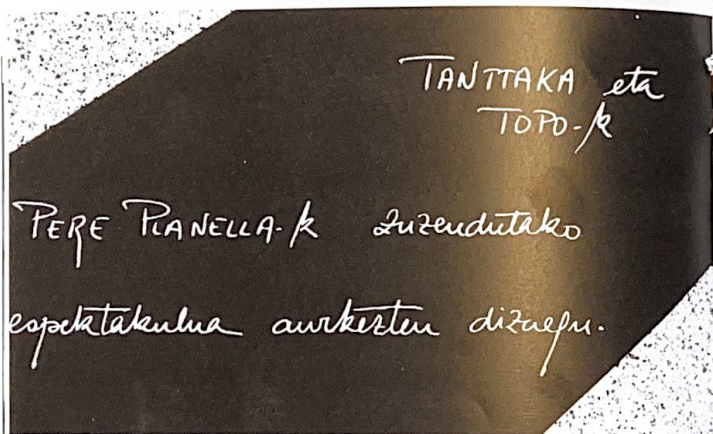 TANTTAKA eta
TOPO-k
PERE PLANELLA-k zuzendutako
espektakulua aurkezten dizuegu.